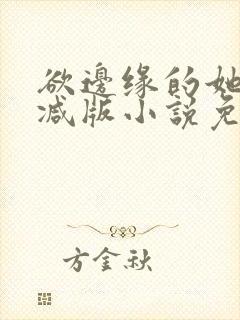 欲邊缘的她
减版小説免
方金秋